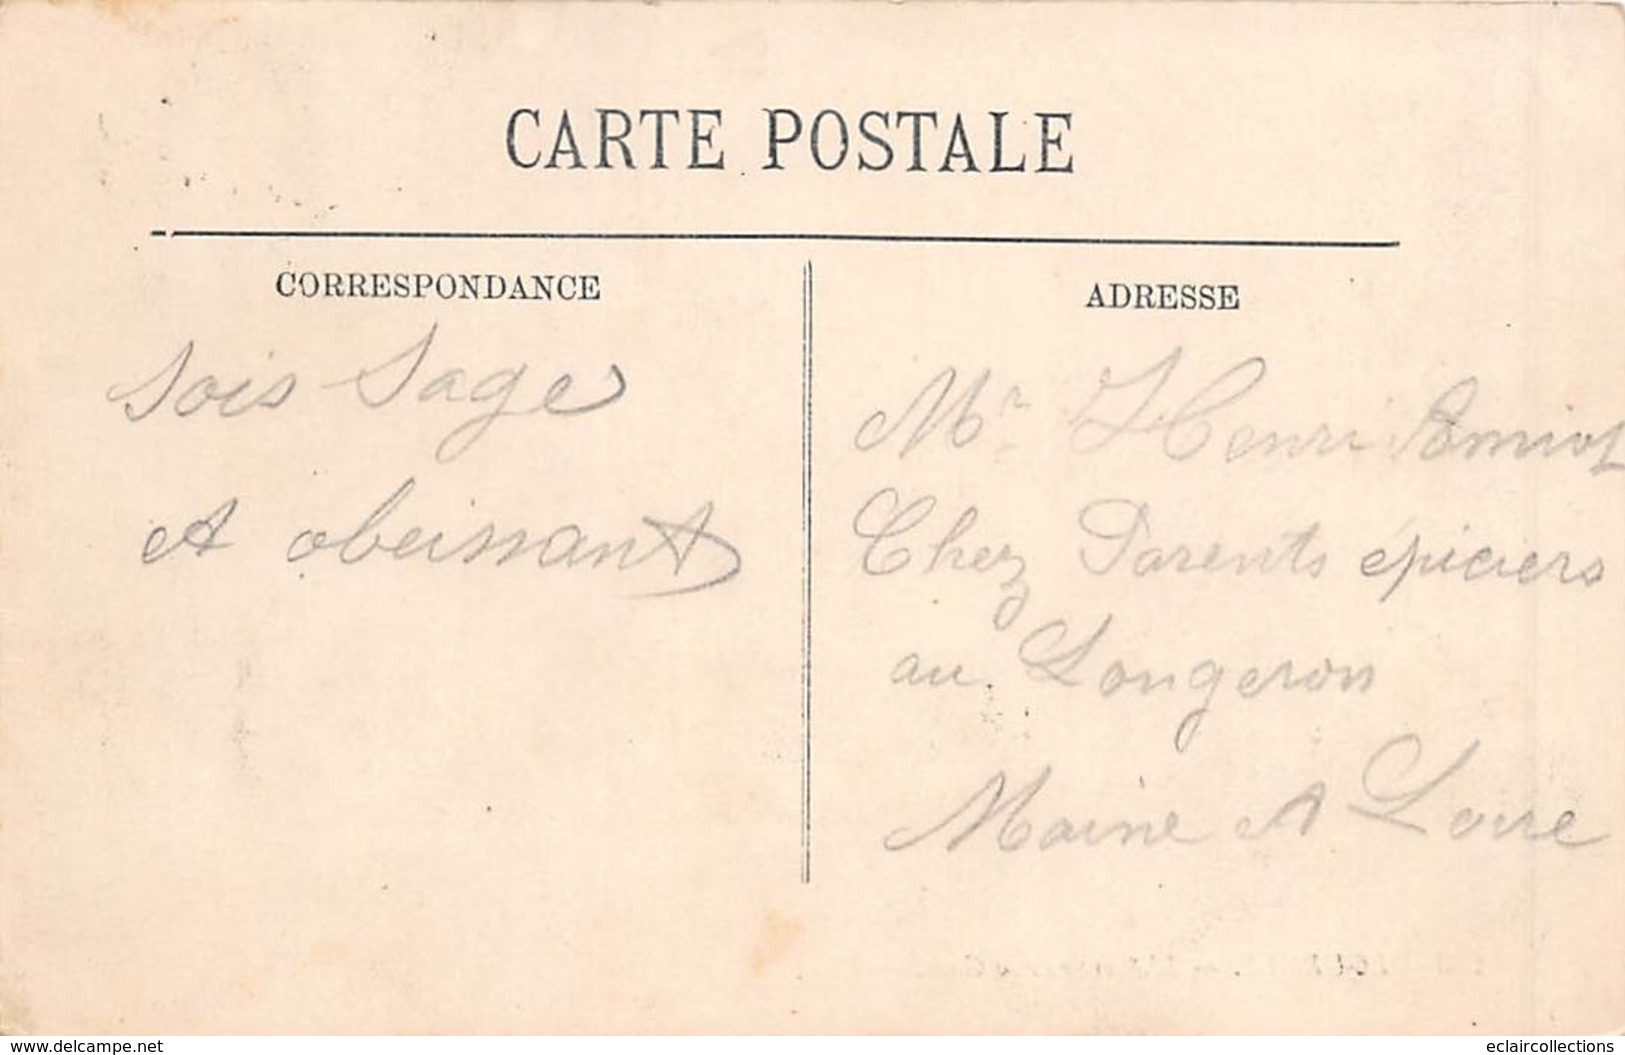 CARTE POSTALE
CORRESPONDANCE
ADRESSE
Sois Sage
et obeissant
Mr Henri Amiot
Chez Parents épiciers
au Longeron
Maine et Loire
www.delcampe.net
eclaircollections